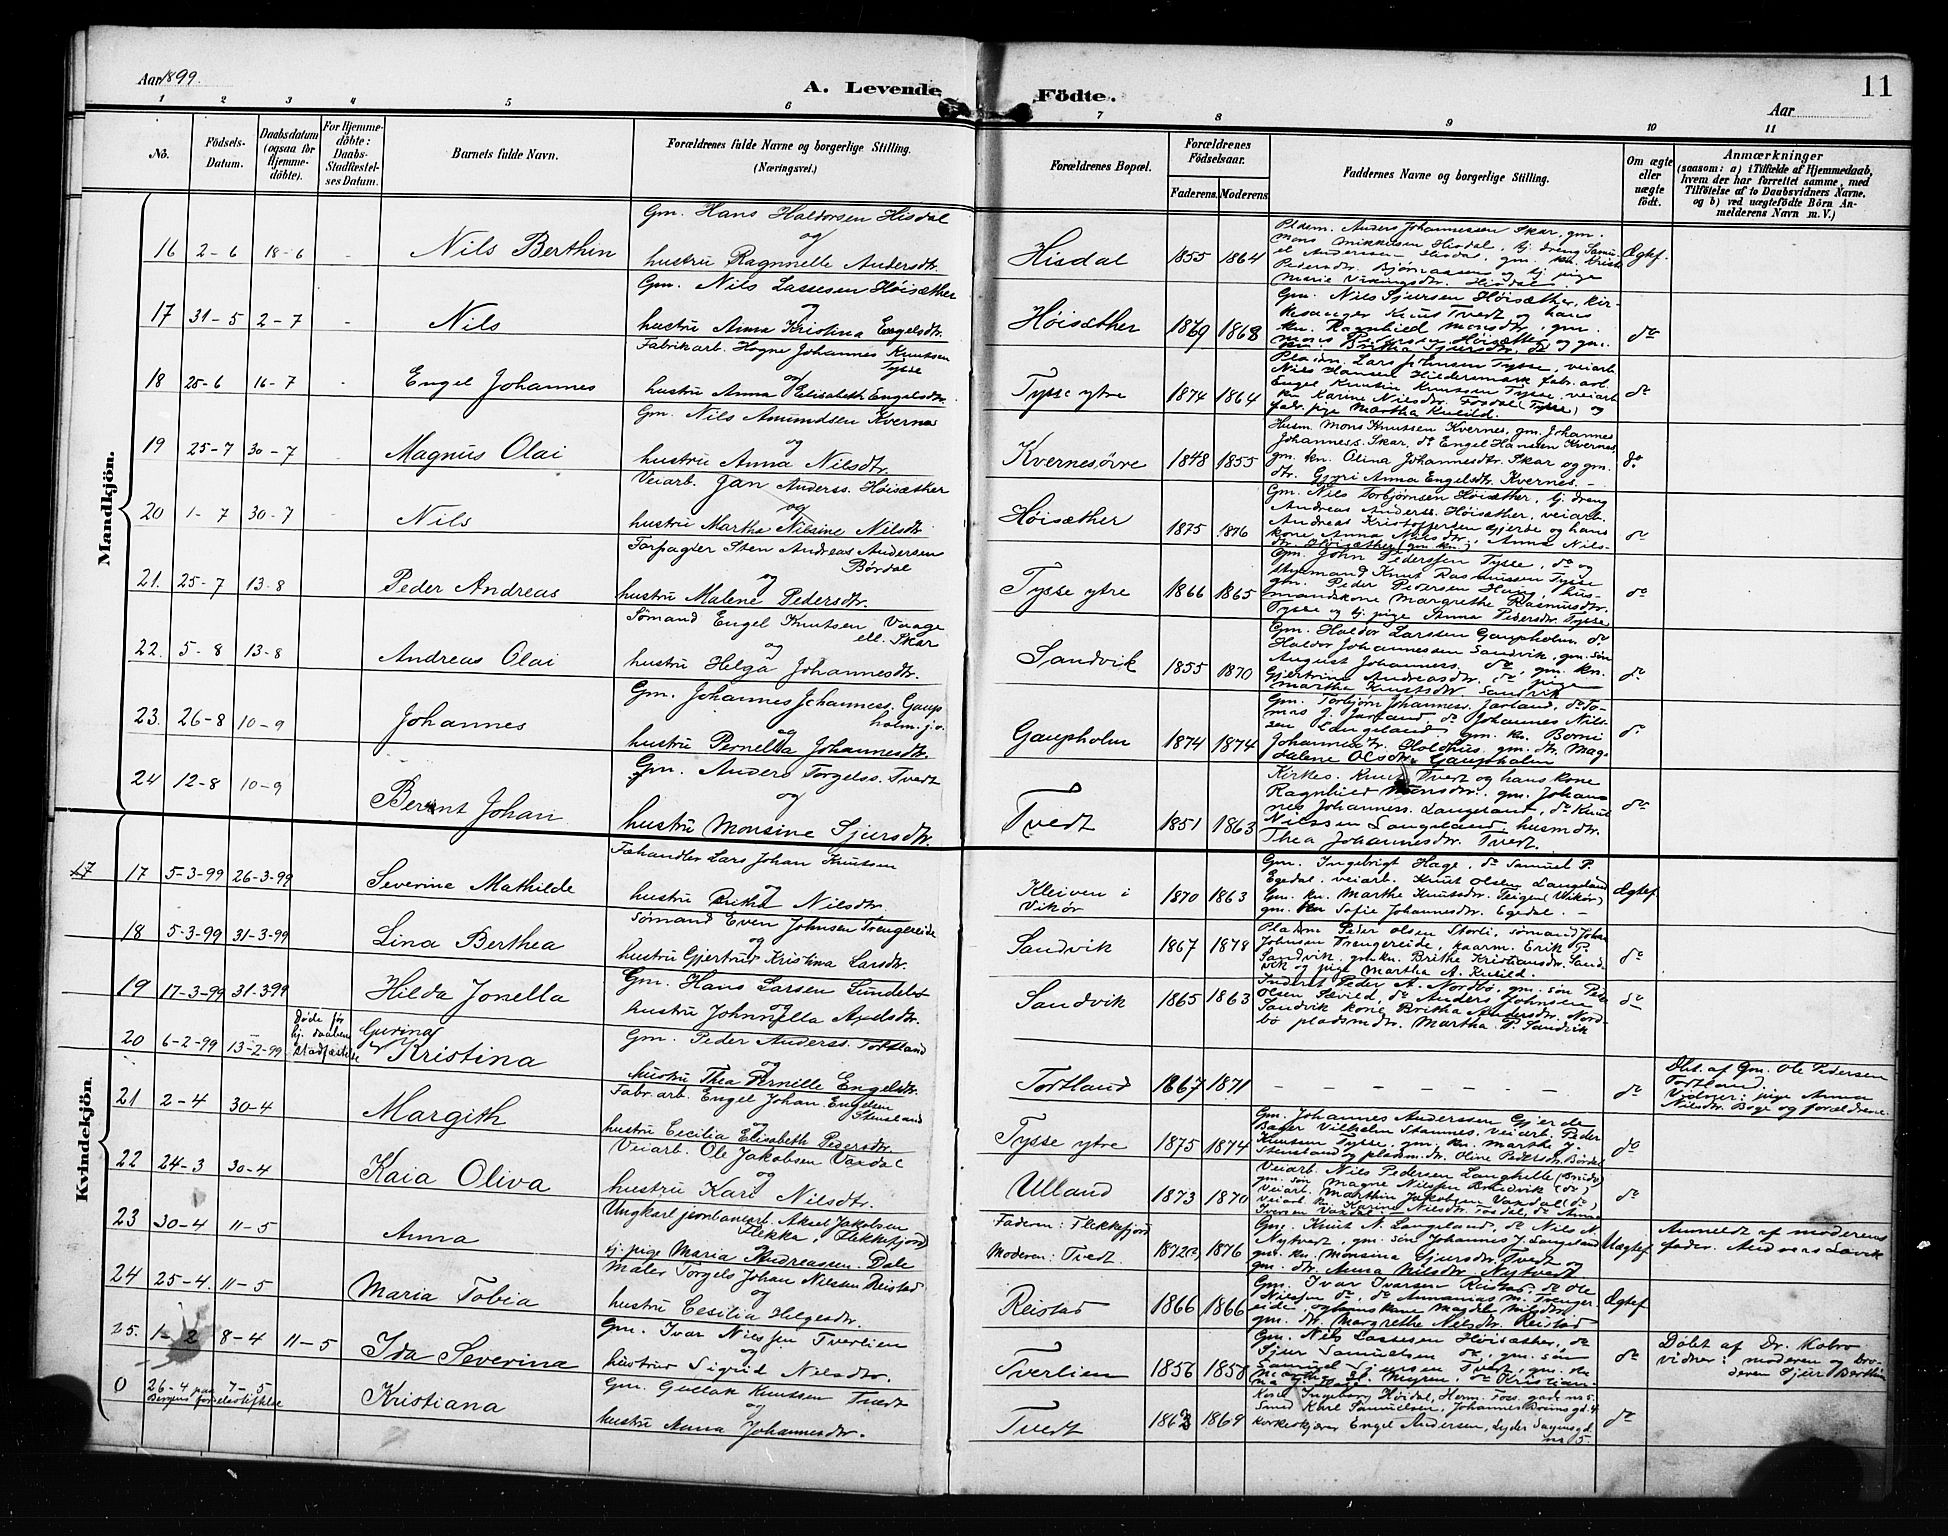 Aar 1899.
A. Levende Födte.
11
Aar
1 2 3 4 5 6 7 8 9 10 11
No.
Födsels-Datum.
Daabsdatum (ogsaa för Hjemme-döbte).
For Hjemme-döbte: Daabs-Stadfæstel-ses Datum.
Barnets fulde Navn.
Forældrenes fulde Navne og borgerlige Stilling.
(Næringsvei.)
Forældrenes Bopæl.
Forældrenes Födselsaar.
Faderens. Moderens.
Faddernes Navne og borgerlige Stilling.
Om ægte eller uægte födt.
Anmærkninger
(saasom: a) i Tilfælde af Hjemmedaab, hvem der har forrettet samme, med Tilföielse af to Daabsvidners Navne, og b) ved uægtefödte Börn Anmelderens Navn m. V.)
Mandkjön.
16 2-6 18-6 Nils Berthin
Gm. Hans Haldorsen Hisdal
og
hustru Ragnnelle Andersdtr.
Hisdal 1855 1864
Pldsm. Anders Johannessen Skar, gm.
Mons Mikkelsen Hisdal, tj. dreng Samu-
el Andersen Hisdal, gm. kn. Krist
Pedersdtr. Bjørnaasen og tj. pige
Marie Vikingsdtr. Hisdal.
Ægtef.
17 31-5 2-7 Nils
Gm. Nils Lassesen Høisæther
og
hustru Anna Kristina Engelsdtr.
Høisæther 1869 1868
Gm. Nils Sjursen Høisæther, kir-
kesanger Knut Tvedt og hans
kn. Ragnhild Monsdtr, gm.
Mons Pedersen Høisæther og gm.
kn. Britha Sjursdtr. do
do
18 25-6 16-7 Engel Johannes
Fabrikarb. Hogne Johannes Knutsen
Tysse
og
hustru Anna Elisabeth Engelsdtr.
Tysse ytre 1874 1864
Pladsm. Lars Johnsen Tysse, veiarb.
Nils Hansen Hildersmark, fab. arb.
Engel Knutsen Tysse, veiarb
kn Karine Nilsdtr. Fosdal (Tysse) og
fadr. pige Martha Kveild.
do
19 25-7 30-7 Magnus Olai
Gm. Nils Amundsen Kvernes
og
hustru Anna Nilsdtr.
Kvernesøvre 1848 1855
Husm. Mons Knutsen Kvernes, gm. Johannes
Johanness. Skar, do Engel Hansen Kvernes,
gm. kn. Olina Johannesdtr. Skar og gm.
dtr. Gjyri Anna Engelsdtr. Kvernes.
do
20 1-7 30-7 Nils
Veiarb. Jan Anderss. Høisæther
og
hustru Martha Nilsine Nilsdtr.
Høisæther 1875 1876
Gm. Nils Torbjørnsen Høisæther, tj. dreng
Andreas Anderss. Høisæther, veiarb.
Andreas Kristoffersen Gjerde og hans
kone Anna Nilsdtr, Anna Nils-
dtr. Høisæther (gm. kn.)
do
21. 25-7 13-8 Peder Andreas
Forpagter Sten Andreas Andersen
Børdal
og
hustru Malene Pedersdtr.
Tysse ytre 1866 1865
Gm. John Pederssen Tysse, do og
styrmand Knut Rasmussen Tysse
gm. Peder Pedersen Haug, hus-
mandskone Margrethe Rasmusdtr.
Tysse og tj. pige Anna Pedersdtr. Tysse
do
22. 5-8 13-8 Andreas Olai
Sømand Engel Knutsen Vaage
ell. Skar
og
hustru Helga Johannesdtr.
Sandvik 1855 1870
Gm. Haldor Larssen Gaupholm, do.
Haldor Johannessen Sandvik, gm. søn
August Johanness. do, gm. kn.
Gjertrine Andreasdtr. do, pige
Martha Knutsdtr. Sandvik
do
23. 26-8 10-9 Johannes
Gm. Johannes Johanness. Gaup
holm. j.o.
og
hustru Pernella Johannesdtr.
Gaupholm 1874 1874
Gm. Torbjørn Johanness. Jarland, do To-
mas J. Jarland, do Johannes Nils-
sen Langeland, gm. kn. Borni
Johannesdtr. Holdhus, gm. dtr. Mag-
dalene Olsdtr. Gaupholm
do
24 12-8 10-9 Bernt Johan
Gm. Anders Torgelss. Tvedt
og
hustru Monsine Sjursdtr.
Tvedt 1851 1863
Kirkes. Knut Tvedt og hans kone
Ragnhild Monsdtr. gm. Johan-
nes Johanness. Langeland, do Knut
Nilssen Langeland, husm. dtr.
Thea Johannesdtr. Tvedt.
do
Kvindekjön.
17 17 5-3-99 26-3-99 Severine Mathilde
Fæhandler Lars Johan Knutsen
og
hustru Britha Nilsdtr.
Kleiven i
Vikør
1870 1863
Gm. Ingebrigt Hage, do Samuel P.
Egedal, veiarb. Knut Olsen Langeland
Gm. kn. Marthe Knutsdtr. Teigen (Vikør)
gm. kn Sofie Johannesdtr. Egedal.
Ægtef.
18 5-3-99 31-3-99 Lina Berthea
Sømand Even Johnsen Trengereide
og
hustru Gjertrud Kristina Larsdtr.
Sandvik 1867 1878
Pladsm Peder Olsen Storli, sømand Johan
Johnsen Trengereide, kaarm. Erik P.
Sandvik, gm. kn. Brithe Kristiansdtr. Sand
vik og pige Martha A. Kveild.
do
19 17-3-99 31-3-99 Hilda Jonella
Gm. Hans Larsen Lundebø
og
hustru Johnnella Axelsdtr.
Sandvik 1865 1863
Inderst Peder A. Nordbø, gm. søn Peder
Olsen Sæveld, do Anders Johnsen
Sandvik kone Britha Andersdtr. Nord-
bø pladsm. dtr. Martha P. Sandvik
do
20 6-2-99 13-2-99
Døde før
hj. daabens
stadfæstelse
Gurina
Kristina
Gm. Peder Anderss. Tortland
og
hustru Thea Pernille Engelsdtr.
Tortland 1867 1871
do
Døbt af Gm. Ole Pedersen
Tortland.
Vidner: pige Anna
Nilsdtr. Boge og forældrene
21 2-4 30-4 Margith
Fabr. arb. Engel Johan Engelsen
Stensland
og
hustru Cecilia Elisabeth Pedersdtr.
Tysse ytre 1875 1874
Gm. Johannes Anderssen Gjerde
Bager Vilhelm Stamnes, veiarb. Peder
Knutsen Tysse, gm. kn. Marthe J.
Stensland og pladsm. dtr. Oline Pedersdtr. Børdal
do
22 24-3 30-4 Kaia Oliva
Veiarb. Ole Jakobsen Vaxdal
og
hustru Kari Nilsdtr.
Ulland 1873 1870
Veiarb. Nils Pedersen Langhelle (Bruvik)
gm. søn Magne Nilsen Bruvik (do)
veiarb. Marthin Jakobsen Vaxdal (do)
veiarb. kn Karine Nilsdtr. Fosdal, do Anna
Iversen Vaxdal
do
23 30-4 11-5 Anna
Ungkarl jernbanearb. Aksel Jakobsen
Flekka, Flekkefjord
tj. pige Maria Andreassen. Dale
Faderen: Flekkefjord
Moderen: Tvedt.
1872 1876
Gm. Knut N. Langeland, do Nils N.
Nytvedt, gm. søn Johannes J. Langeland
gm. kn. Monsina Sjursdtr. Tvedt og
gm. dtr. Anna Nilsdtr. Nytvedt
Uægtef
Anmeldt af moderens
fader. Andreas Løvik
24 25-4. 11-5 Maria Tobia
Maler Torgels Johan Nilssen Reistad
og
hustru Cesilia Helgesdtr.
Reistad 1866 1866
Gm. Ivar Ivarsen Reistad, do Ole
Nilssen do, do Annanias M. Trenger-
eide, og hans kone Magdele Nilsdtr
gm. dtr. Margrethe Nilsdtr. Reistad
Ægtef
25. 1-2 8-4 11-5 Ida Severina
Gm. Ivar Nilssen Tverlien
og
hustru Sigrid Nilsdtr.
Tverlien 1856 1858
Gm. Nils Lassesen Høisæther, do
Sjur Samuelsen do, gm. søn
Samuel Sjursen Tvedt, gm. kn.
do
Døbt af Dr. Kobro
vidner: moderen og bro-
deren Sjur Berthin
0 26-4 paa 7-5
Bergens fødselsstiftelse
Kristiana
Gm. Gullak Knutsen Tvedt
og
hustru Anna Johannesdtr.
Tvedt 1863 1869
Kone Ingeborg Høidal, Herm. Foss. gade no 5.
Smed Karl Samuelsen, Johannes Bruns gd. 4
korkeskjærer Engel Andersen, Lyder Sagensgd.
no 5.
do